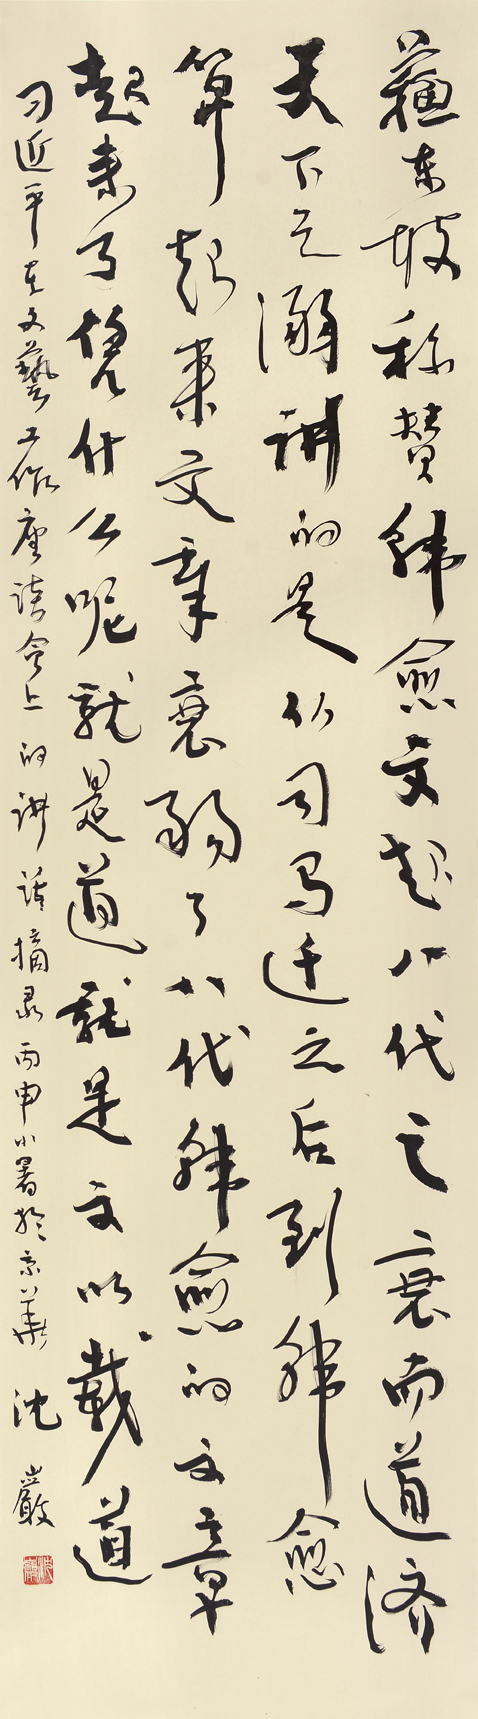 蘇东坡称赞韩愈文起八代之衰而道济
天下之溺讲的是从司马迁之后到韩愈
算起来文章衰弱了八代韩愈的文章
起来了凭什么呢就是道就是文以载道
习近平在文藝工作座谈会上的讲话摘录丙申小暑於京華沈巖